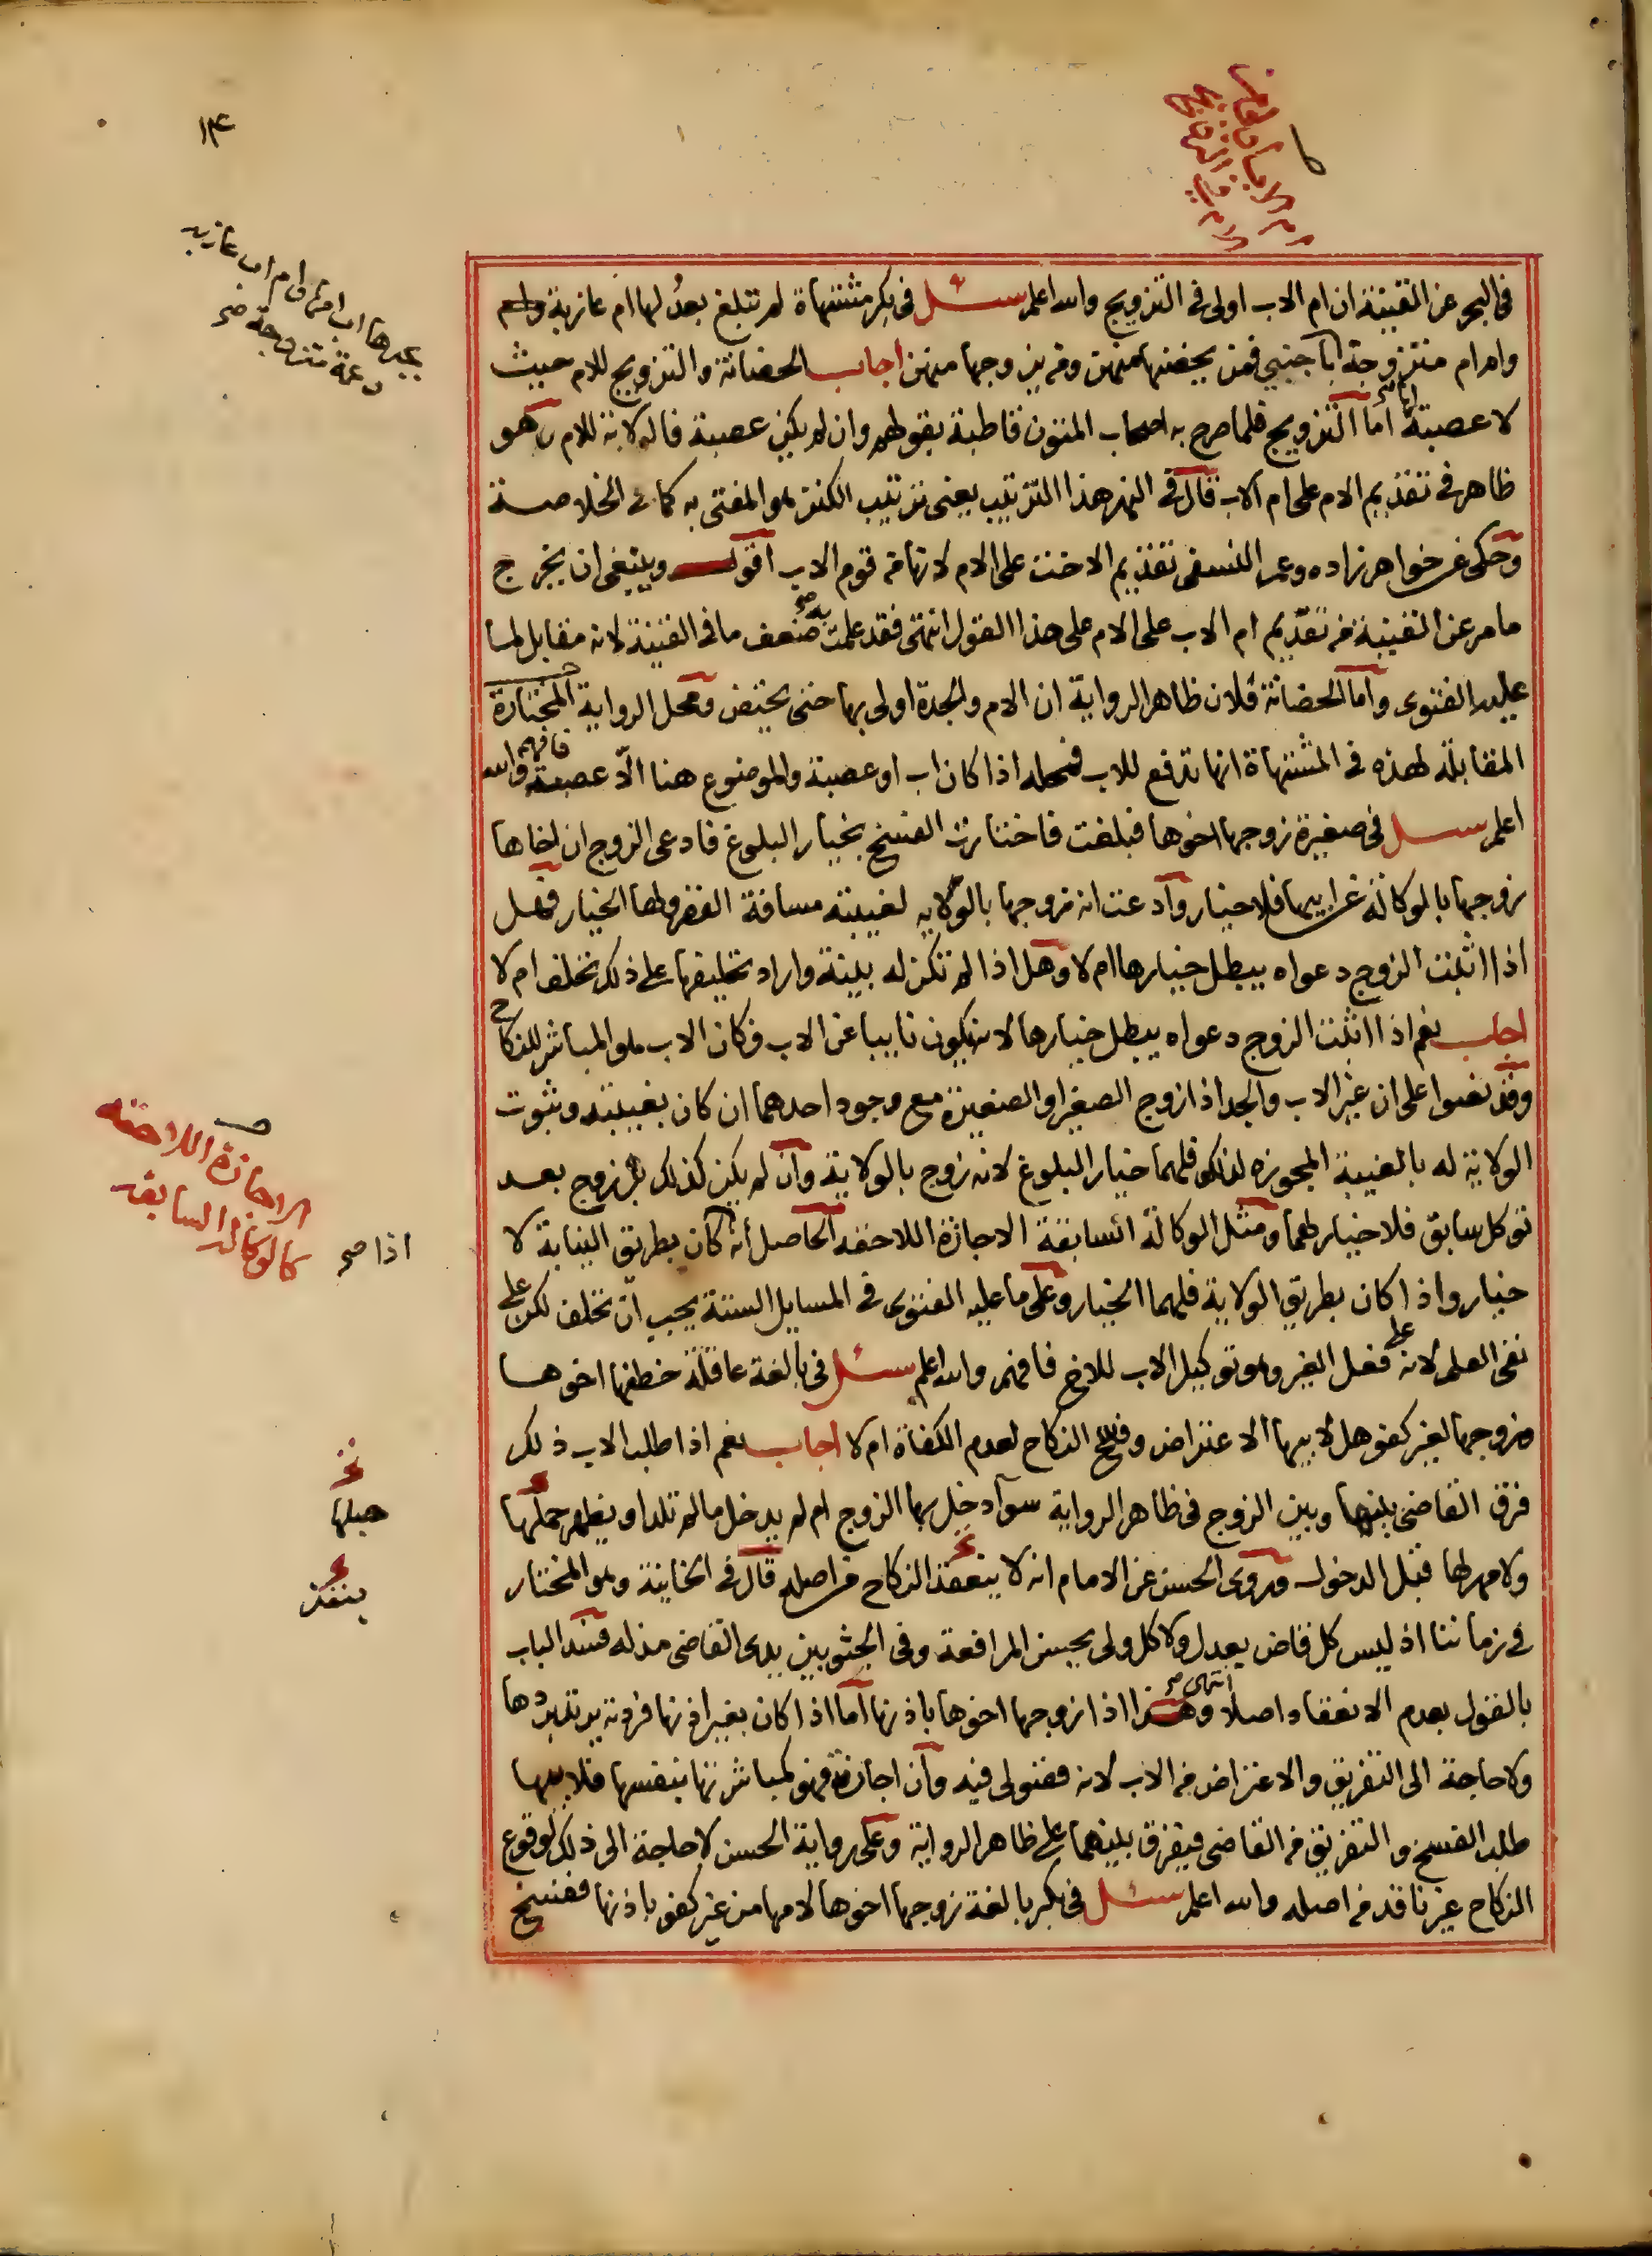 ١٤
ام الاب اولى من
الام في التزويج
بجدها اب امها وام اب عازبه
وعمة متزوجة صح
في البحر عن القنية ان ام الاب اولى في التزويج والله اعلم سئل في بكر مشتهاة لم تبلغ بعد لها ام عازبة
وام ام متزوجة باجنبي فمن يحضنها منهن ومن يزوجها منهن اجاب الحضانة والتزويج للام حيث
لا عصبة اما التزويج فلما صرح به اصحاب المتون قاطبة بقولهم وان لم يكن عصبة فالولاية للام وهو
ظاهر في تقديم الام على ام الاب قال في النهر هذا الترتيب يعني ترتيب الكنز هو المفتى به كما في الخلاصة
وحكى عن خواهر زاده وعمر النسفى تقديم الاخت على الام لانها من قوم الاب اقول وينبغى ان يخرج
ما مر عن القنية من تقديم ام الاب على الام على هذا القول انتهى فقد علمت به ضعف ما في القنية لانه مقابل لما
عليه الفتوى واما الحضانة فلان ظاهر الرواية ان الام والجدة اولى بها حتى تحيض ومحل الرواية المختارة
المقابلة لهذه في المشتهاة انها تدفع للاب فمحله اذا كان اب او عصبة والموضوع هنا الا عصبة فافهم والله
اعلم سئل في صغيرة زوجها اخوها فبلغت فاختارت الفسخ بخيار البلوغ فادعى الزوج ان اخاها
زوجها بالوكالة عن ابيها فلا خيار وادعت انه زوجها بالولايه لغيبته مسافة القصر ولها الخيار فهل
اذا اثبت الزوج دعواه يبطل خيارها ام لا وهل اذا لم تكن له بينة واراد تحليفها على ذلك تحلف ام لا
اجاب نعم اذا اثبت الزوج دعواه يبطل خيارها لانه يكون نايبا عن الاب فكان الاب هو المباشر للنكاح
وقد نصوا على ان غير الاب والجد اذا زوج الصغير او الصغيرة مع وجود احدهما ان كان بغيبته وثبوت
الولاية له بالغيبة المجوزه لذلك فلهما خيار البلوغ لانه زوج بالولاية وان لم يكن كذلك بل زوج بعد
توكل سابق فلا خيار لهما ومثل الوكالة السابقة الاجازة اللاحقه الحاصل انه كان بطريق النيابة لا
خيار واذا كان بطريق الولاية فلهما الخيار وعلى ما عليه الفتوى في المسايل الستة يجب ان تحلف لكن على
نفى العلم لانه على فعل الغير وهو توكيل الاب للاخ فافهم والله اعلم سئل في بالغة عاقلة خطفها اخوها
وزوجها لغير كفو هل لابيها الاعتراض وفسخ النكاح لعدم الكفاة ام لا اجاب نعم اذا طلب الاب ذلك
فرق القاضى بينها وبين الزوج في ظاهر الرواية سوآ دخل بها الزوج ام لم يدخل ما لم تلد او يظهر حملها
ولا مهر لها قبل الدخول وروى الحسن عن الامام انه لا ينعقد النكاح من اصله قال في الخانية وهو المختار
في زماننا اذ ليس كل قاض يعدل ولا كل ولى يحسن المرافعة وفى الجثو بين يدى القاضى مذله فسد الباب
بالقول بعدم الانعقاد اصلا انتهى صح وهذا اذا زوجها اخوها باذنها اما اذا كان بغير اذنها فردته يرتد بردها
ولا حاجة الى التفريق والاعتراض من الاب لانه فضولى فيه وان اجازته فهو كمباشرتها بنفسها فلابيها
طلب الفسخ والتفريق من القاضى فيفرق بينهما على ظاهر الرواية وعلى رواية الحسن لا حاجة الى ذلك لوقوع
النكاح غير نافذ من اصله والله اعلم سئل في بكر بالغة زوجها اخوها لامها من غير كفو باذنها ففسخ
الاجازة اللاحقه
كالوكالة السابقه
اذا صح
حبلها
ينفذ